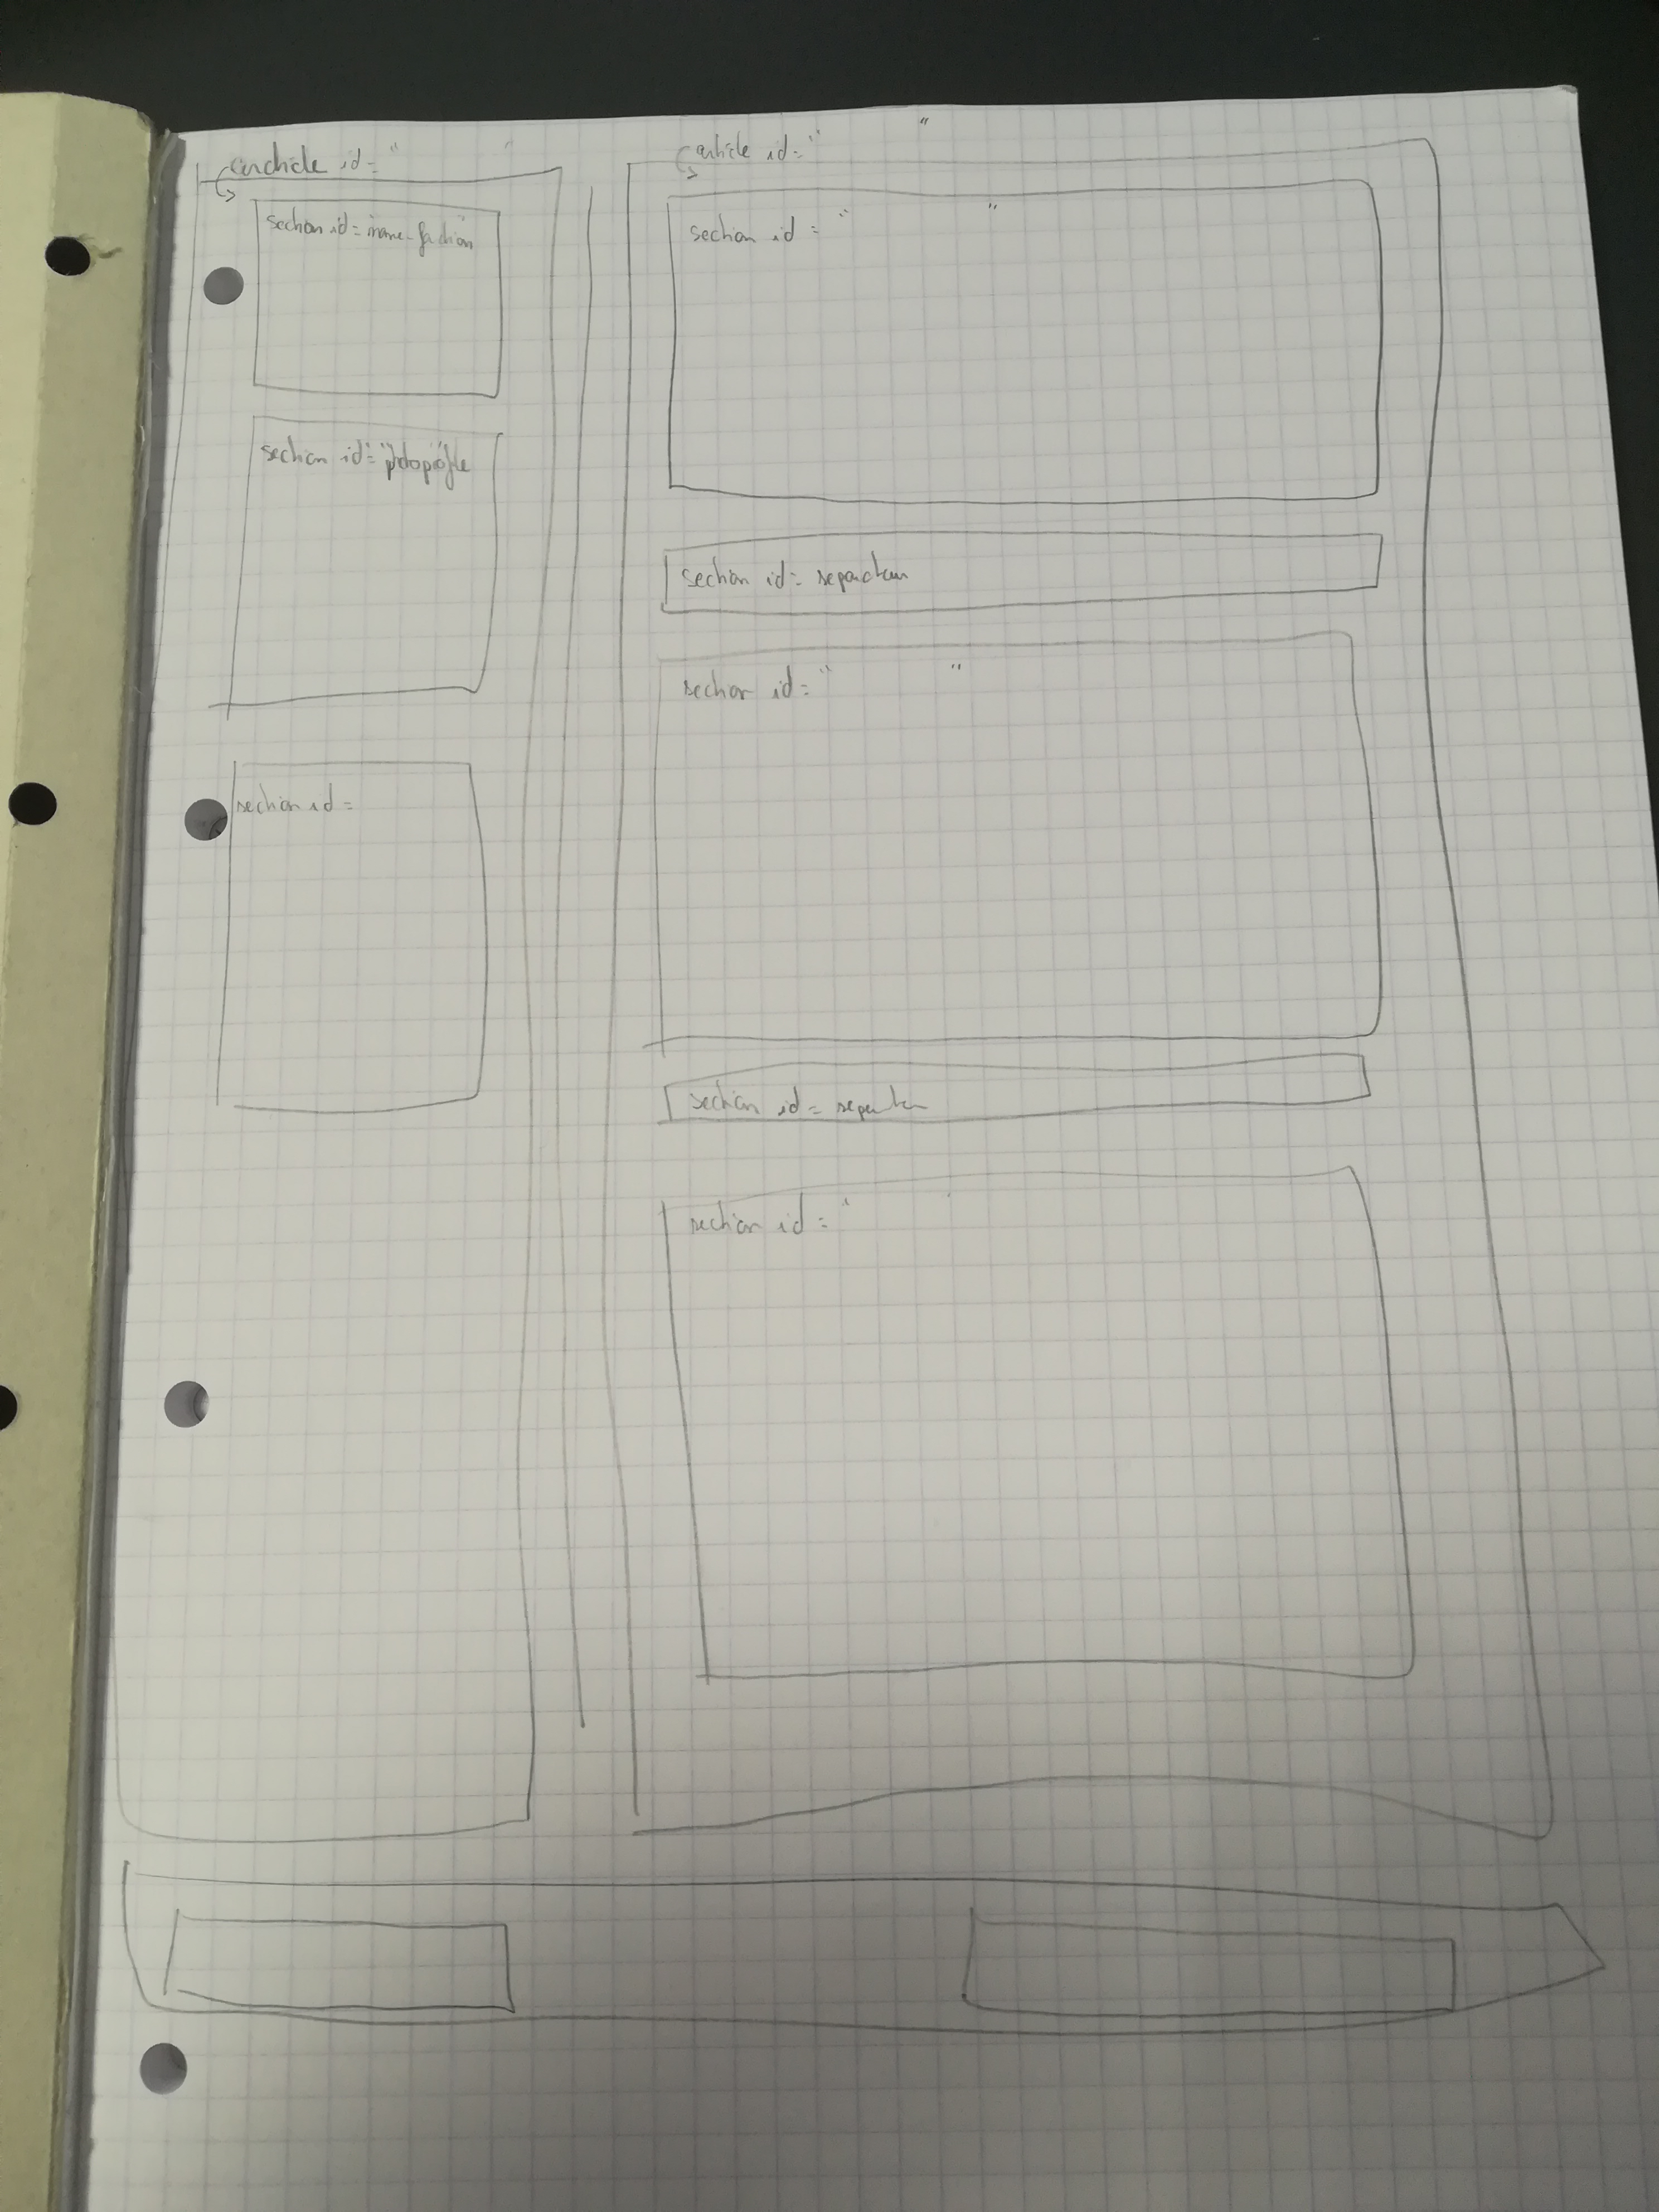 article id= " "
section id=
section id="photoprofile"
section id=
article id=" "
section id = " "
section id= separateur
section id=" "
section id= separateur
section id = "